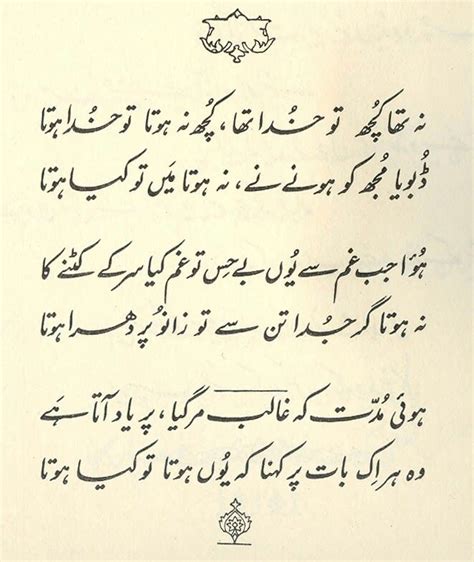 نہ تھا کُچھ تو خُدا تھا، کُچھ نہ ہوتا تو خُدا ہوتا
ڈُبویا مُجھ کو ہونے نے، نہ ہوتا مَیں تو کیا ہوتا
ہُؤا جب غم سے یُوں بے حِس تو غم کیا سر کے کٹنے کا
نہ ہوتا گر جُدا تن سے تو زانُو پر دھرا ہوتا
ہوئی مُدّت کہ غالب مر گیا، پر یاد آتا ہَے
وہ ہر اِک بات پر کہنا کہ یُوں ہوتا تو کیا ہوتا